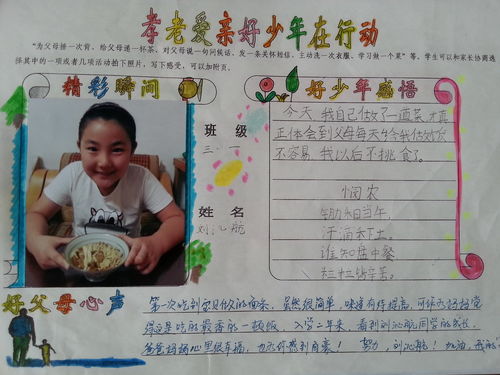 孝老爱亲好少年在行动
“为父母捶一次背、给父母递一杯茶、对父母说一句问候话、发一条关怀短信、主动洗一次衣服、学习做一个菜”等。学生可以和家长协商选
择其中的一项或者几项活动拍下照片,写下感受,可以加附页。
精彩瞬间
班 级
三·一
姓 名
刘沁航
好少年感悟
今天,我自己做了一道菜,才真
正体会到父母每天给我做饭
不容易,我以后不挑食了。
悯农
锄禾日当午,
汗滴禾下土。
谁知盘中餐
粒粒皆辛苦。
好父母心声
第一次吃到宝贝做的面条,虽然很简单,味道有待提高,可作为妈妈觉
得这是吃的最香的一顿饭。入学二年来,看到刘沁航同学的成长,
爸爸妈妈心里很幸福,也为你感到自豪!努力,刘沁航!加油,我的